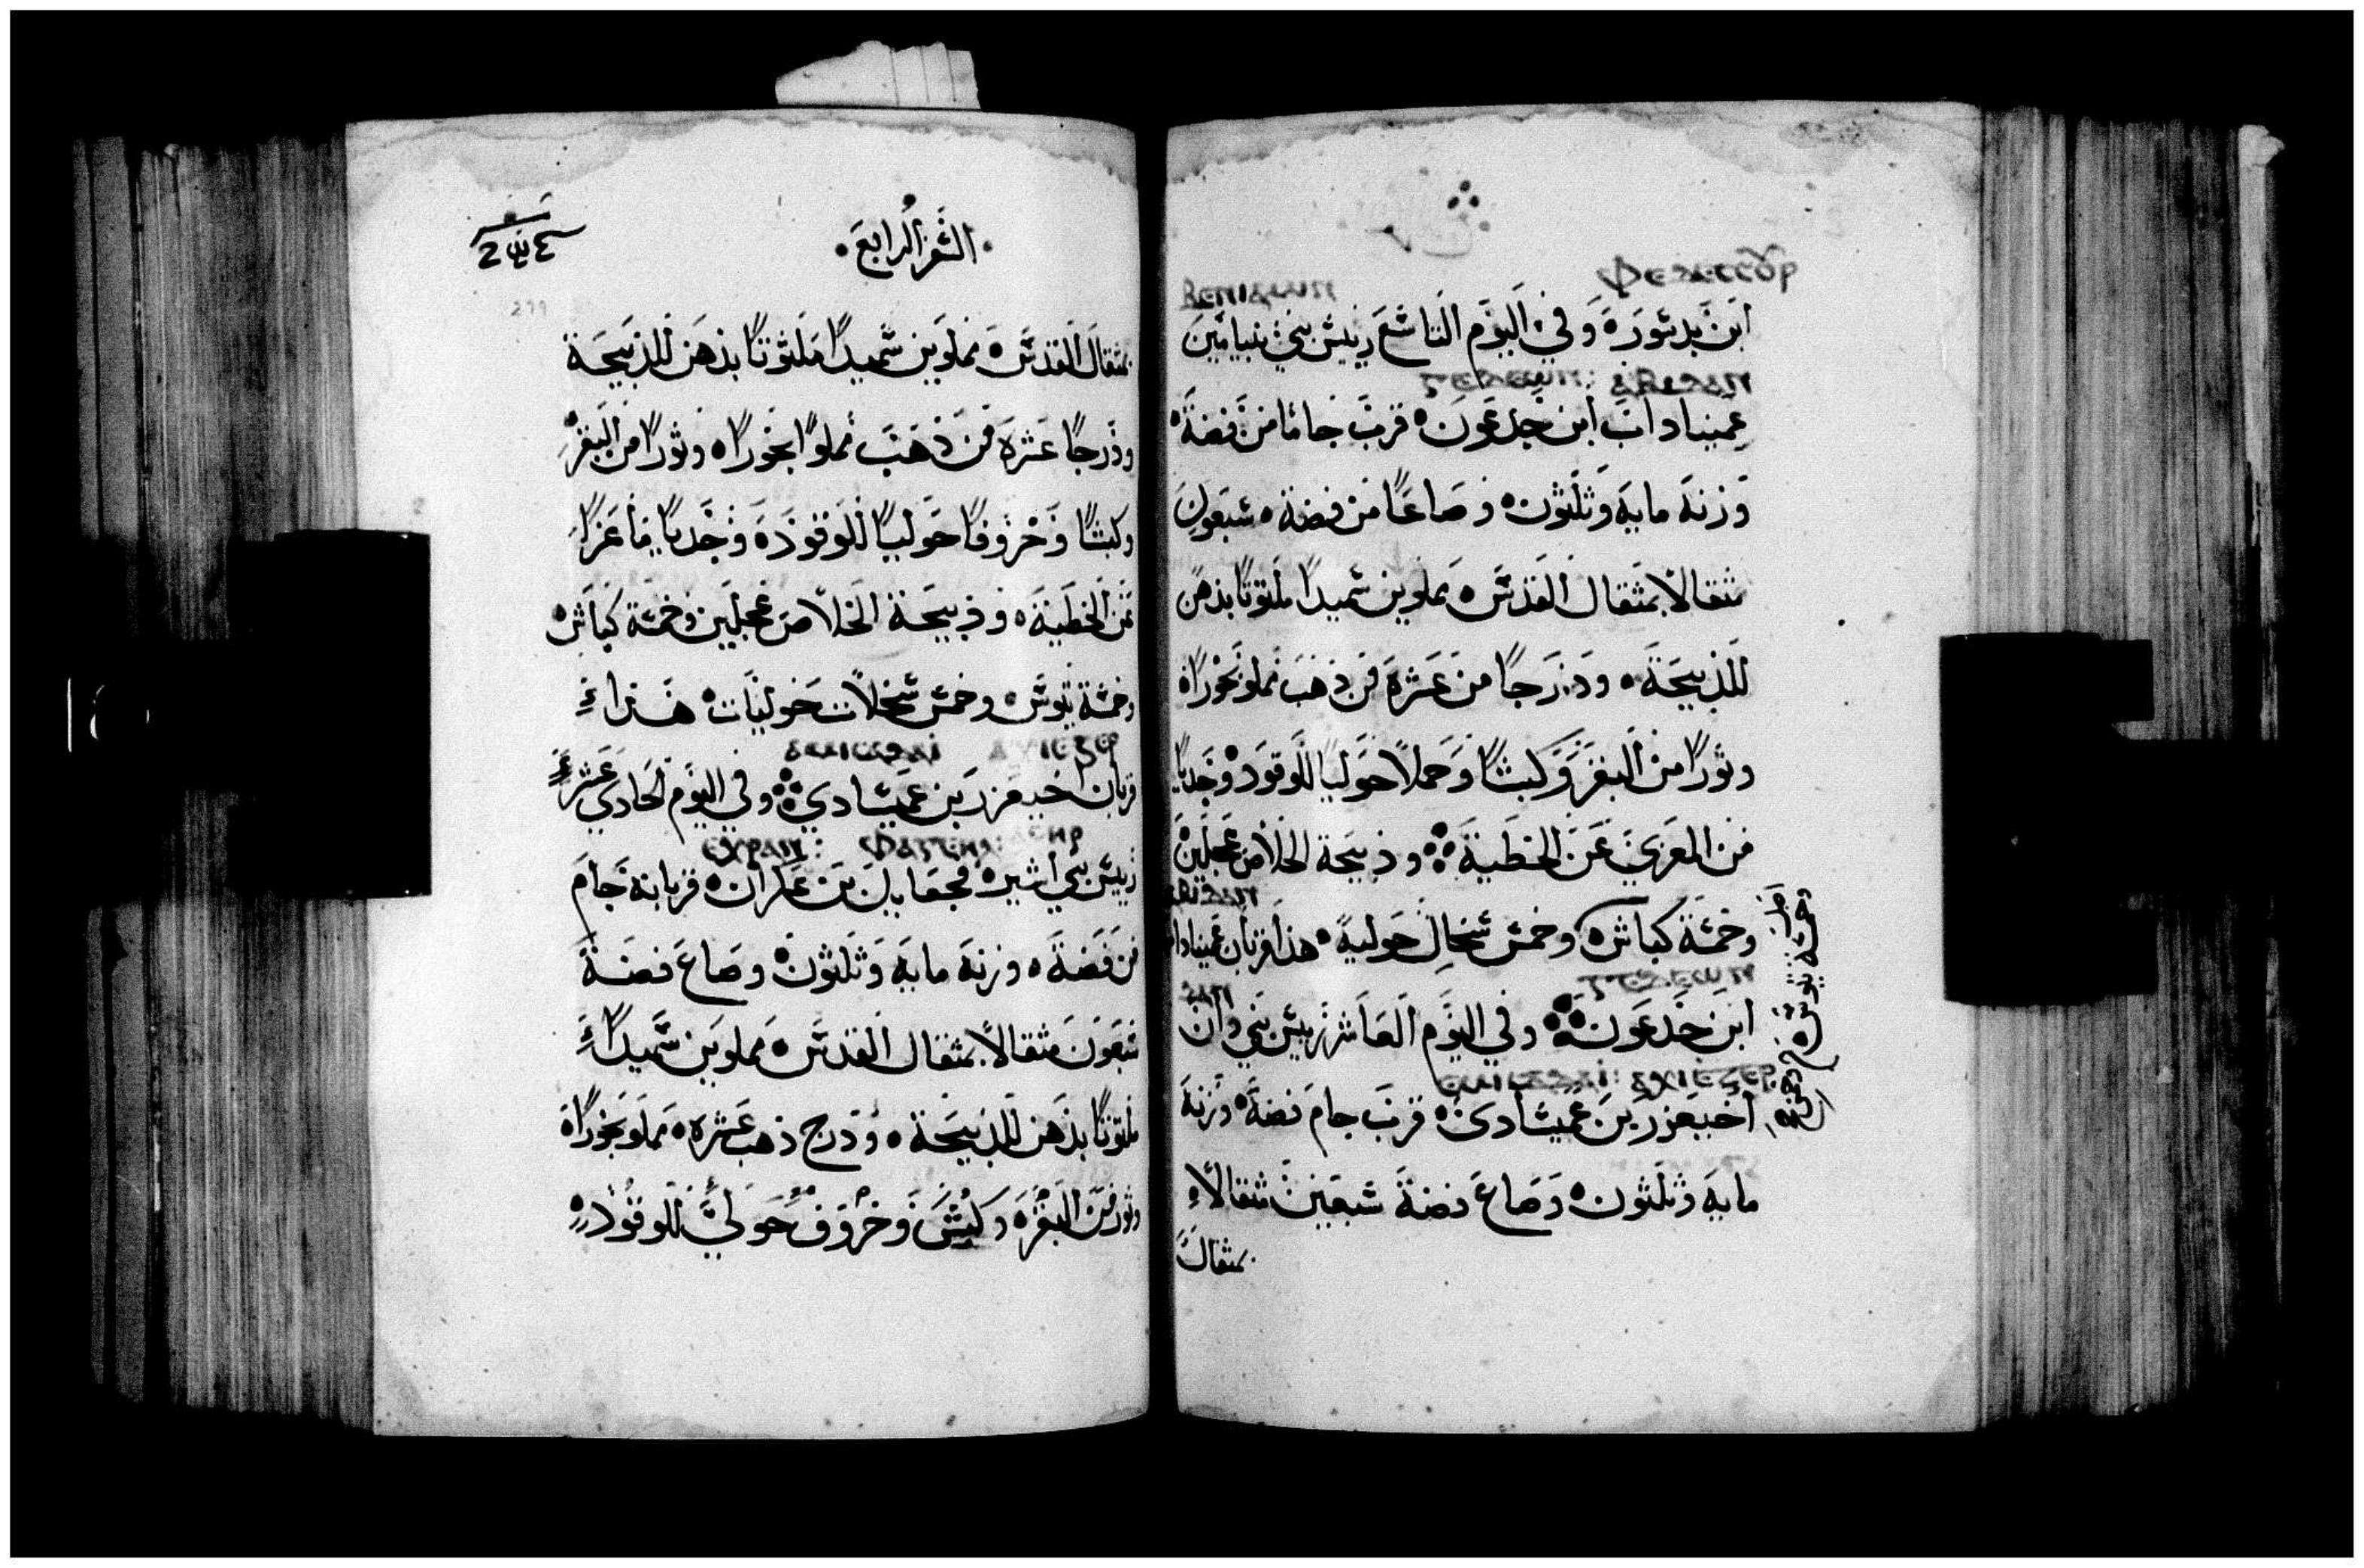 ⲫⲉⲇⲁⲥⲥⲟⲩⲣ
ⲃⲉⲛⲓⲁⲙⲓⲛ
ابن بدسورة وفي اليوم التاسع رييس بني بنيامين
ⲁⲃⲓⲇⲁⲛ
عميناداب ابن جدعون قرب جاما من فضة
وزنة مايه وثلثون وصاعا من فضة سبعون
مثقالا بمثقال القدس مملوين سميدا ملتوتا بدهن
للذبيحة ودرجا من عشرة من ذهب مملو بخورا
وثورا من البقر وكبشا وحملا حوليا للوقود وجديا
من المعزي عن الخطية وذبيحة الخلاص عجلين
ⲁⲃⲓⲇⲁⲛ
وخمسة كباش وخمس سخال حولية هذا قربان عميناداب
وخمسة تيوس
ⲇⲁⲛ
ابن جدعون وفي اليوم العاشر رييس بني دان
ⲁⲭⲓⲉⲍⲉⲣ
اخيعزر بن عميشادي قرب جام فضة وزنة
مايه وثلثون وصاع فضة سبعين مثقالا
بمثقال
السفر الرابع
بمثقال القدس مملوين سميدا ملتوتا بدهن للذبيحة
ودرجا عشرة من ذهب مملوا بخورا وثورا من البقر
وكبشا وخروفا حوليا للوقودة وجديا ماعزا
عن الخطية وذبيحة الخلاص عجلين وخمسة كباش
وخمسة تيوس وخمس سخلات حوليات هذا
ⲁⲭⲓⲉⲍⲉⲣ
قربان اخيعزر بن عميشادي وفي اليوم الحادي عشر
ⲉⲭⲣⲁⲛ
رييس بني اشير فجعاييل بن عكران قربانه جام
من فضة وزنة مايه وثلثون وصاع فضة
سبعون مثقالا بمثقال القدس مملوين سميدا
ملتوتا بدهن للذبيحة ودرج ذهب عشرة مملو بخورا
وثور من البقر وكبش وخروف حولي للوقود